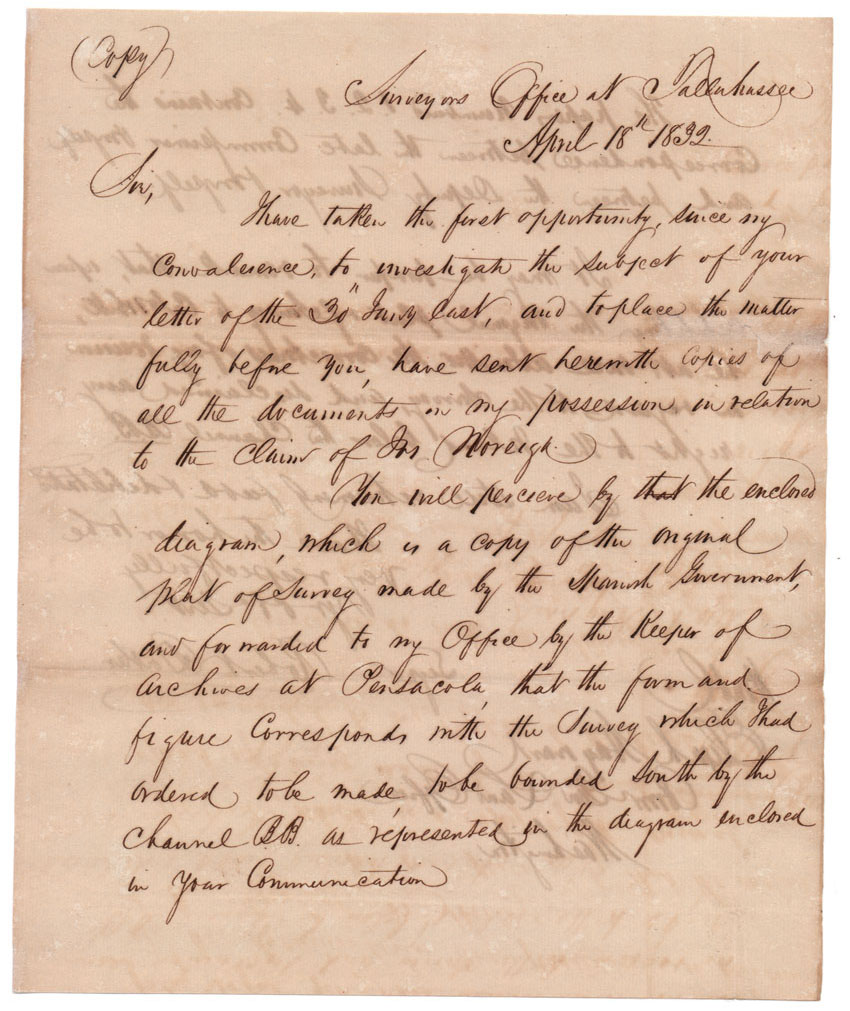 (Copy)
Surveyors Office at Tallahassee
April 18th 1832.
Sir,
I have taken the first opportunity, since my
Convalesence, to investigate the subject of your
letter of the 30th Jany last, and to place the matter
fully before you, have sent herewith Copies of
all the documents in my possession in relation
to the Claim of Jos Noreigh.
You will percieve by that the enclosed
diagram, which is a copy of the original
Plat of Survey made by the Spanish Government,
and forwarded to my Office by the Keeper of
Archives at Pensacola, that the form and
figure Corresponds with the Survey which I had
ordered to be made, to be bounded South by the
Channel B.B. as represented in the diagram enclosed
in your Communication